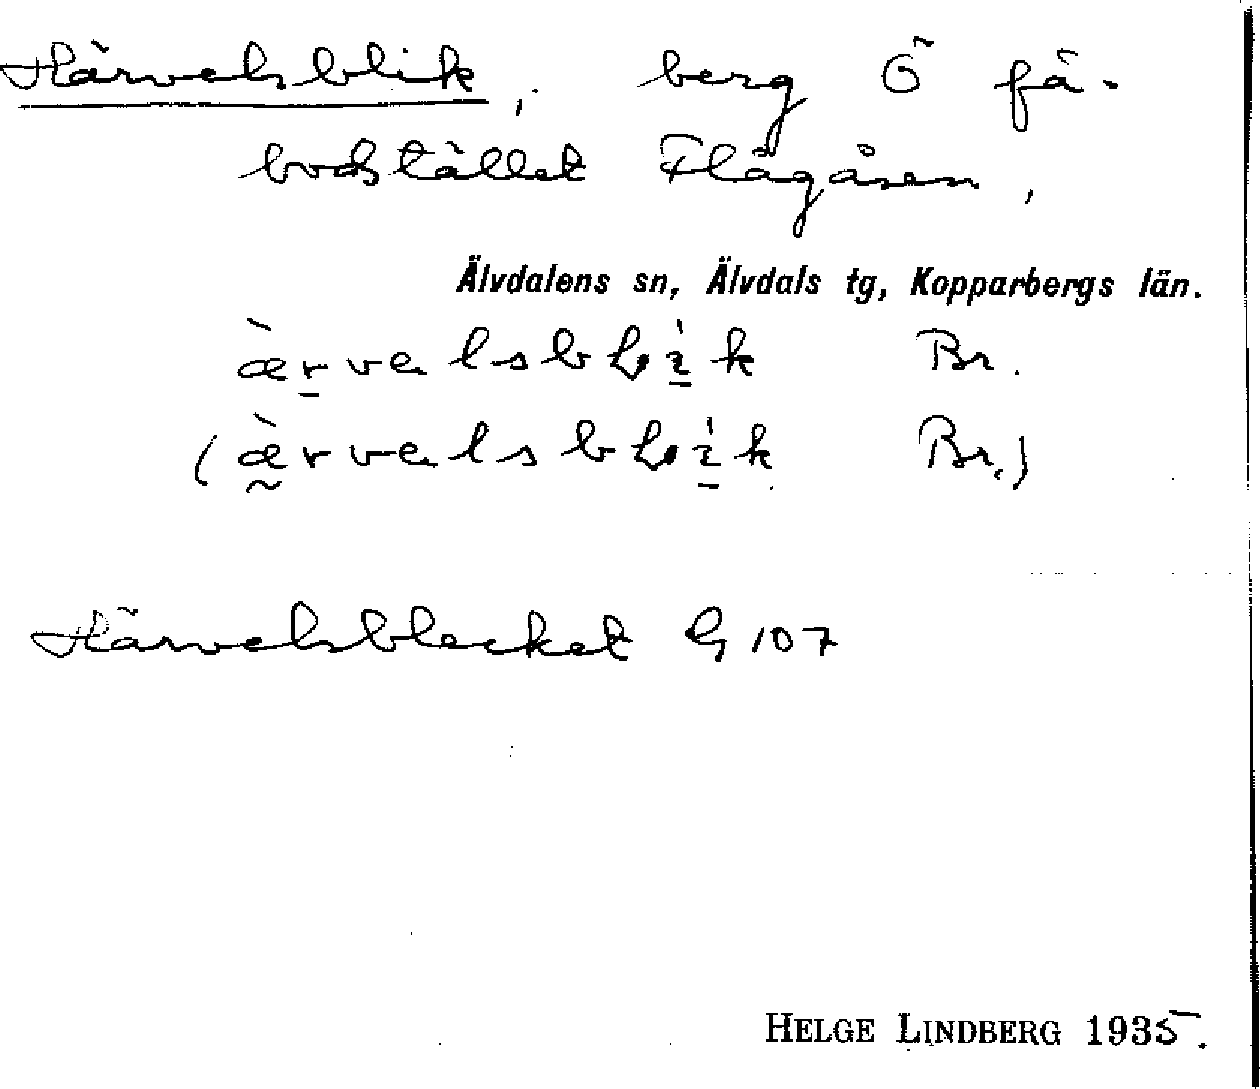 Härvelsblik, berg Ö fä-
bodstället Flågåsen,
Älvdalens sn, Älvdals tg, Kopparbergs län.
Br.
Br.)
Härvelsblecket G 107
HELGE LINDBERG 1935.